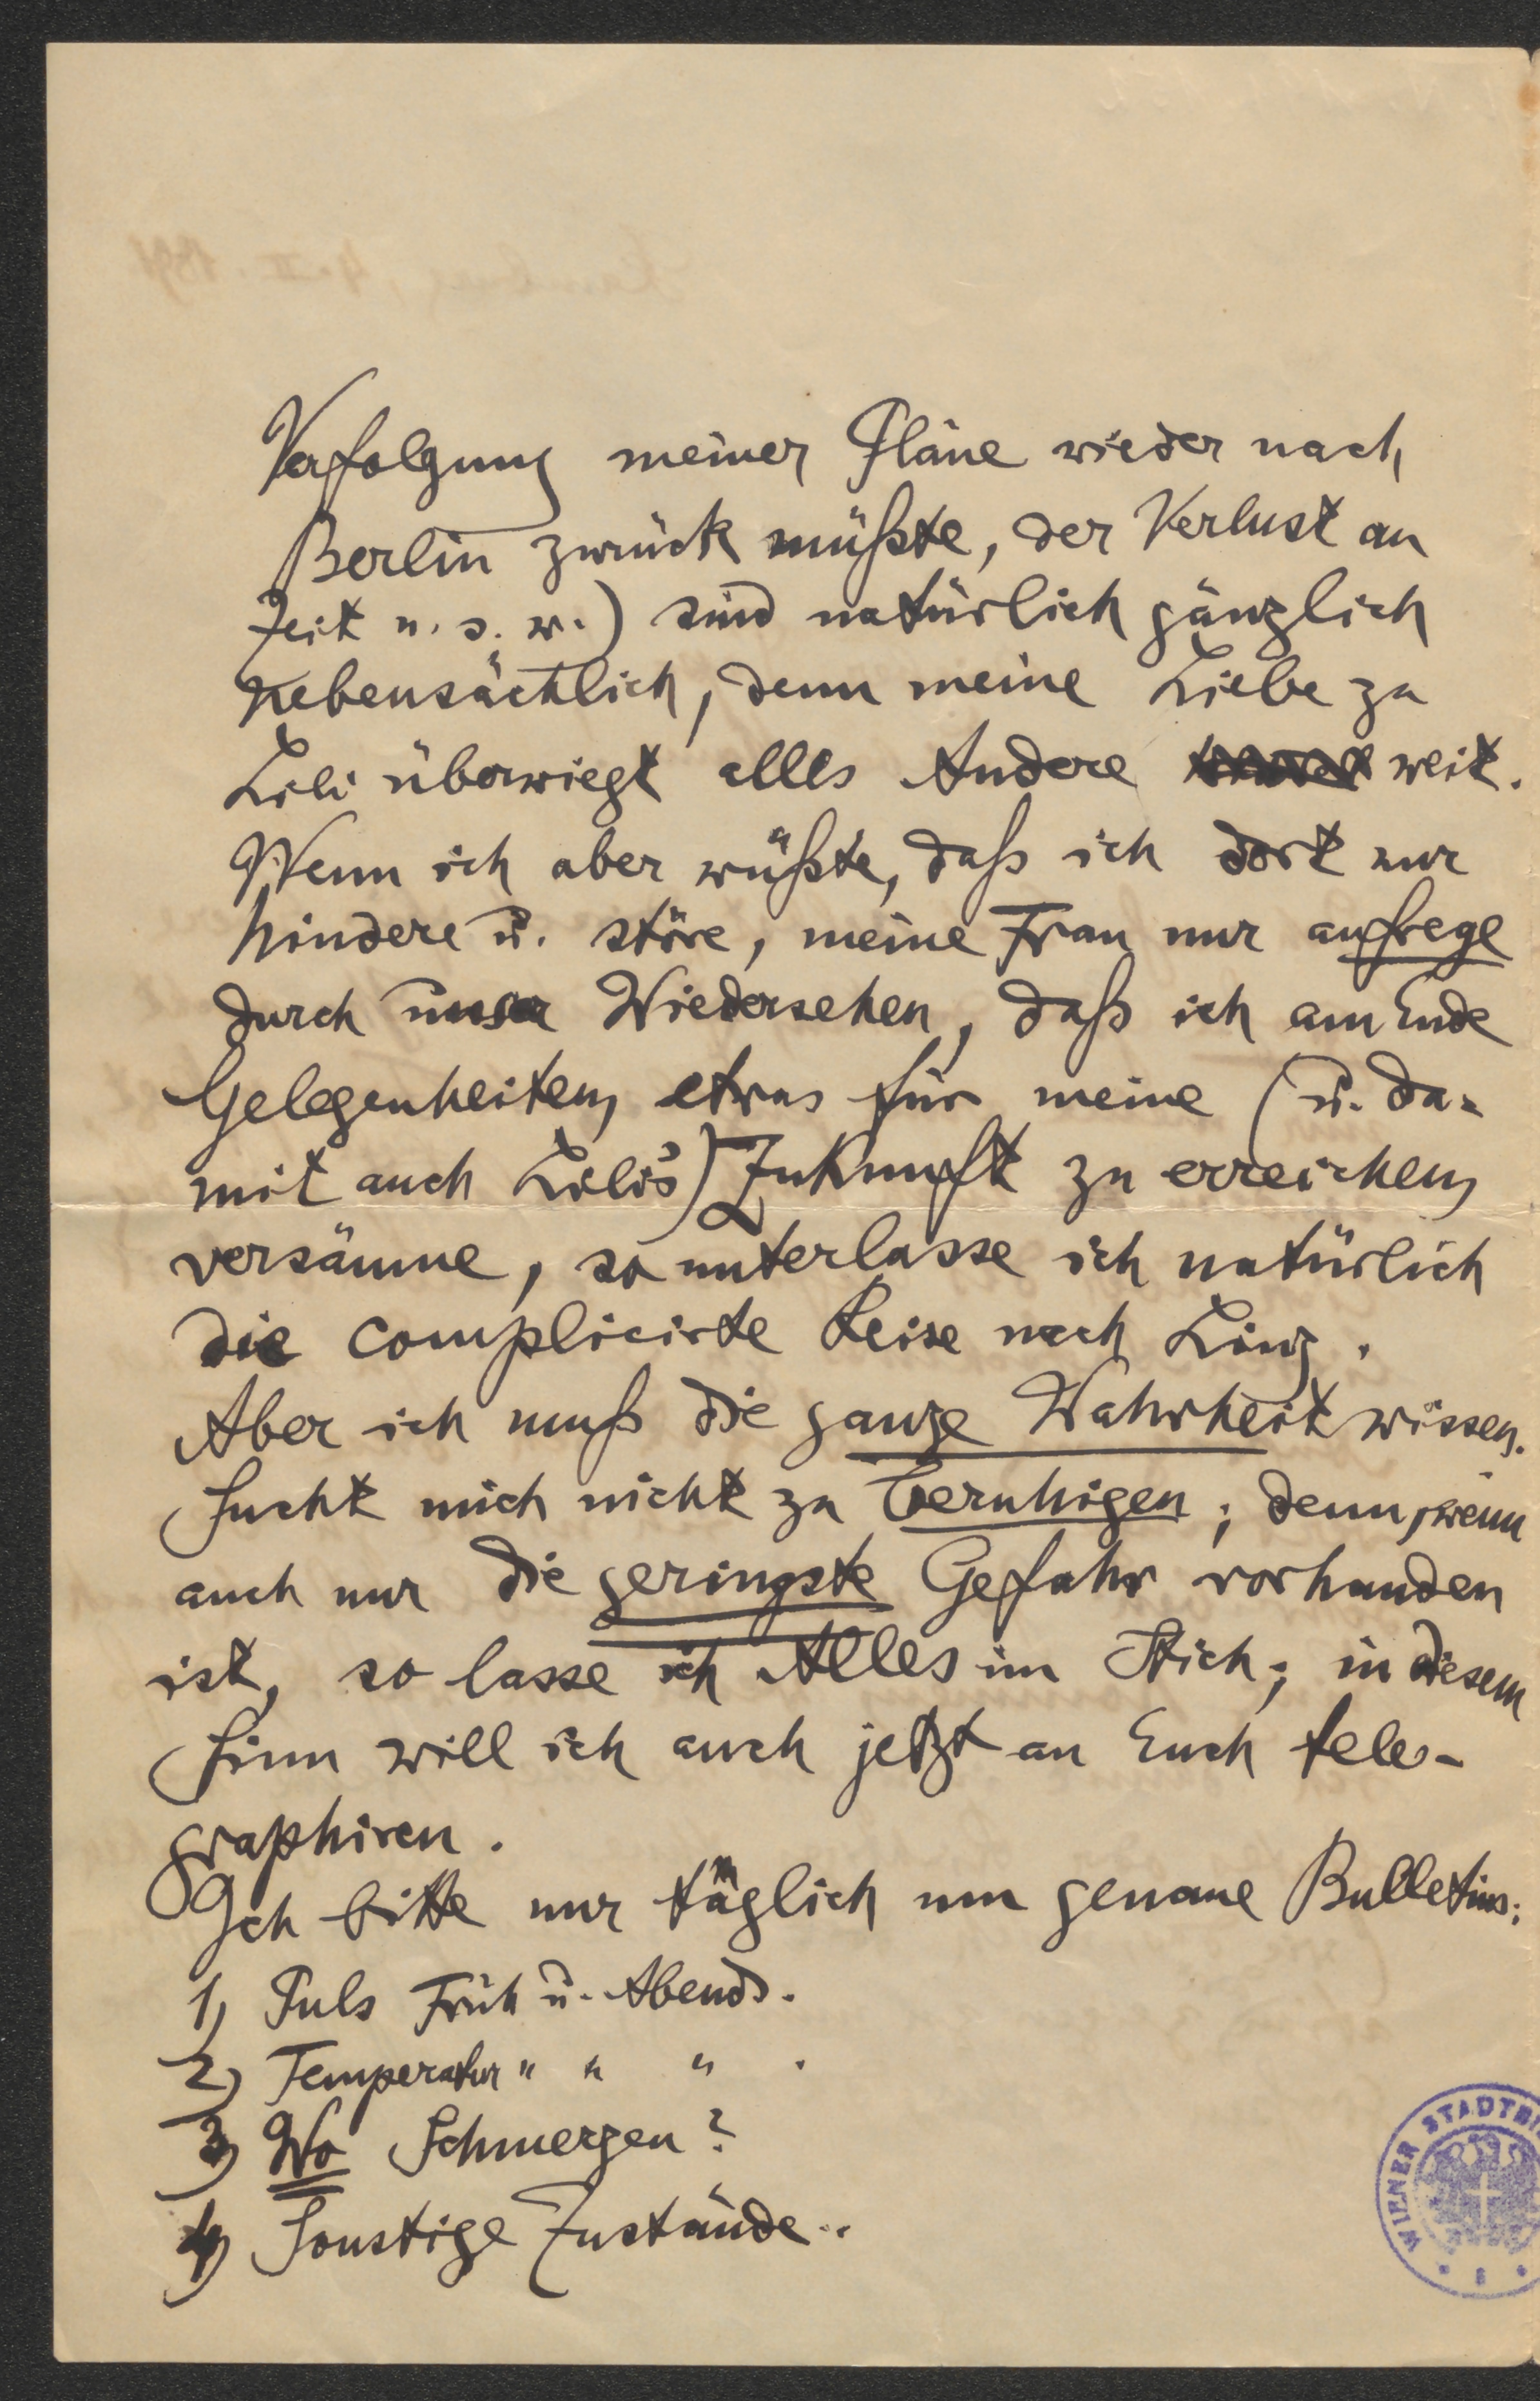 Verfolgung meiner Pläne wieder nach
Berlin zurück müßte, der Verlust an
Zeit u. s. w.) sind natürlich gänzlich
nebensächlich, denn meine Liebe zu
Lili überwiegt alles Andere weit.
Wenn ich aber wüßte, daß ich dort nur
hindere u. störe, meine Frau nur aufrege
durch unser Wiedersehen, daß ich am Ende
Gelegenheiten, etwas für meine (u. da-
mit auch Lili's) Zukunft zu erreichen,
versäume, so unterlasse ich natürlich
die complicirte Reise nach Linz.
Aber ich muß die ganze Wahrheit wissen.
Sucht mich nicht zu beruhigen; denn, wenn
auch nur die geringste Gefahr vorhanden
ist, so lasse ich Alles im Stich; in diesem
Sinn will ich auch jetzt an Euch tele-
graphiren.
Ich bitte nur täglich um genaue Bulletins:
1) Puls Früh u. Abends.
2) Temperatur " " " .
3) Wo Schmerzen?
4) Sonstige Zustände..
WIENER STADTBI